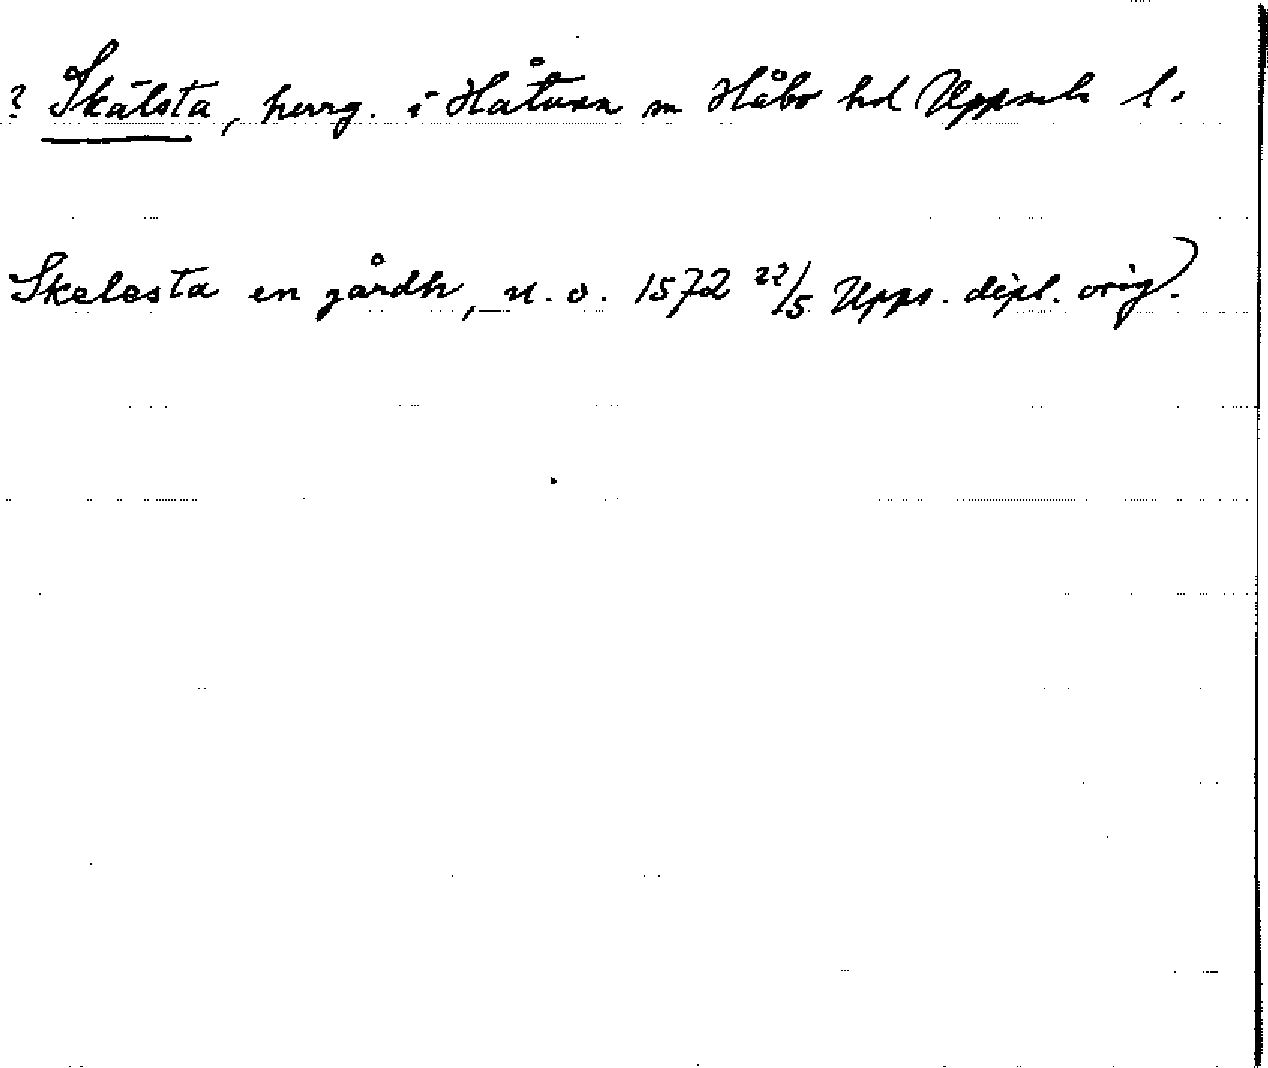 ? Skälsta, herrg. i Håtuna sn Håbo hd Uppsala l.
Skelesta en gårdh, u. o. 1572 22/5 Upps. dipl. orig.